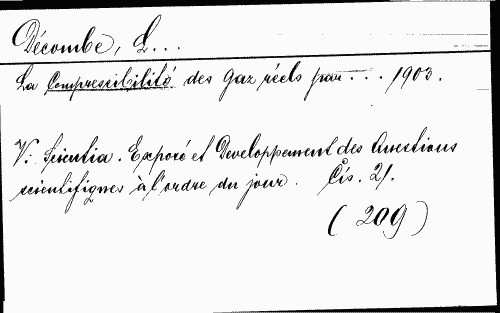 Décombe, L...
La Compressibilité des Gaz réels par... 1903.
V: Scientia. Exposé et Developpement des Questions
scientifiques à l'ordre du jour. Cis. 21.
(209)